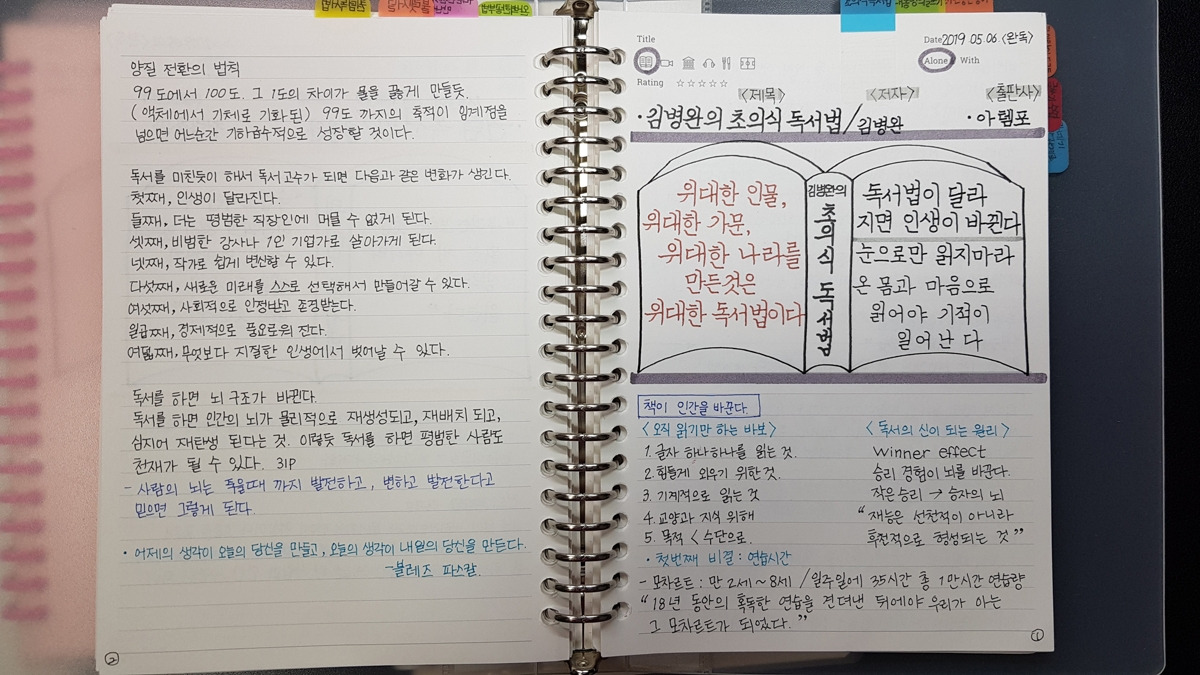 양질 전환의 법칙
99도에서 100도. 그 1도의 차이가 물을 끓게 만들듯.
(액체에서 기체로 기화된) 99도 까지의 축적이 임계점을
넘으면 어느순간 기하급수적으로 성장할 것이다.
독서를 미친듯이 해서 독서고수가 되면 다음과 같은 변화가 생긴다.
첫째, 인생이 달라진다.
둘째, 더는 평범한 직장인에 머물 수 없게 된다.
셋째, 비범한 강사나 1인 기업가로 살아가게 된다.
넷째, 작가로 쉽게 변신할 수 있다.
다섯째, 새로운 미래를 스스로 선택해서 만들어갈 수 있다.
여섯째, 사회적으로 인정받고 존경받는다.
일곱째, 경제적으로 풍요로워 진다.
여덟째, 무엇보다 지질한 인생에서 벗어날 수 있다.
독서를 하면 뇌 구조가 바뀐다.
독서를 하면 인간의 뇌가 물리적으로 재생성되고, 재배치 되고,
심지어 재탄생 된다는 것. 이렇듯 독서를 하면 평범한 사람도
천재가 될 수 있다. 31P
- 사람의 뇌는 죽을때 까지 발전하고, 변하고 발전한다고
믿으면 그렇게 된다.
· 어제의 생각이 오늘의 당신을 만들고, 오늘의 생각이 내일의 당신을 만든다.
-블레즈 파스칼.
2
Title
Date 2019.05.06 <완독>
Alone With
Rating ☆☆☆☆☆
<제목> <저자> <출판사>
· 김병완의 초의식 독서법 / 김병완 · 아템포
위대한 인물,
위대한 가문,
위대한 나라를
만든것은
위대한 독서법이다
김병완의
초의식 독서법
독서법이 달라
지면 인생이 바뀐다
눈으로만 읽지마라
온 몸과 마음으로
읽어야 기적이
일어난다
책이 인간을 바꾼다.
<오직 읽기만 하는 바보>
1. 글자 하나하나를 읽는 것.
2. 힘들게 외우기 위한 것.
3. 기계적으로 읽는 것
4. 교양과 지식 위해
5. 목적 < 수단으로.
<독서의 신이 되는 원리>
Winner effect
승리 경험이 뇌를 바꾼다.
작은 승리 → 승자의 뇌
“재능은 선천적이 아니라
후천적으로 형성되는 것”
· 첫번째 비결 : 연습시간
- 모차르트 : 만 2세~8세 / 일주일에 35시간 총 1만시간 연습량
“18년 동안의 혹독한 연습을 견뎌낸 뒤에야 우리가 아는
그 모차르트가 되었다.”
1